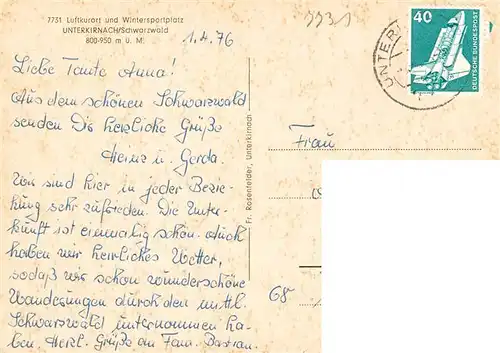 7731 Luftkurort und Wintersportplatz
UNTERKIRNACH/Schwarzwald
800-950 m ü. M.
1.4.76
7731
Liebe Tante Anna!
Aus dem schönen Schwarzwald
senden Dir herzliche Grüße
Heinz u. Gerda.
Wir sind hier in jeder Bezie-
hung sehr zufrieden. Die Unter-
kunft ist einmalig schön. Auch
haben wir herrliches Wetter,
sodaß wir schon wunderschöne
Wanderungen durch den mittl.
Schwarzwald unternommen ha-
ben. Herzl. Grüße an Fam. Bastian.
Fr. Rosenfelder, Unterkirnach
UNTER
40
DEUTSCHE BUNDESPOST
Frau
68